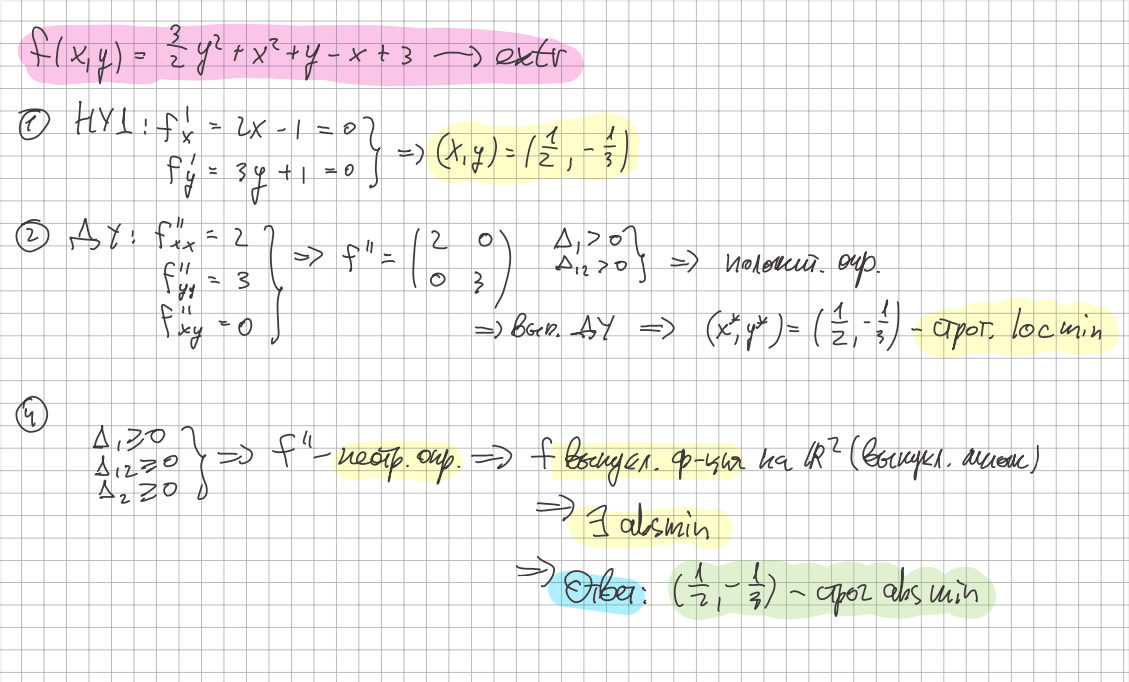 f(x,y) = 3/2 y² + x² + y - x + 3 → extr
① НУ1: f'x = 2x - 1 = 0
f'y = 3y + 1 = 0
} => (x,y) = (1/2, -1/3)
② ДУ: f''xx = 2
f''yy = 3
f''xy = 0
} => f'' = (2 0
0 3)
Δ₁ > 0
Δ₁₂ > 0
} => положит. опр.
=> вып. ДУ => (x*, y*) = (1/2, -1/3) - строг. locmin
④
Δ₁ ≥ 0
Δ₁₂ ≥ 0
Δ₂ ≥ 0
} => f'' - неотр. опр. => f выпукл. ф-ция на ℝ² (выпукл. множ)
=> ∃ absmin
=> Ответ: (1/2, -1/3) - строг absmin